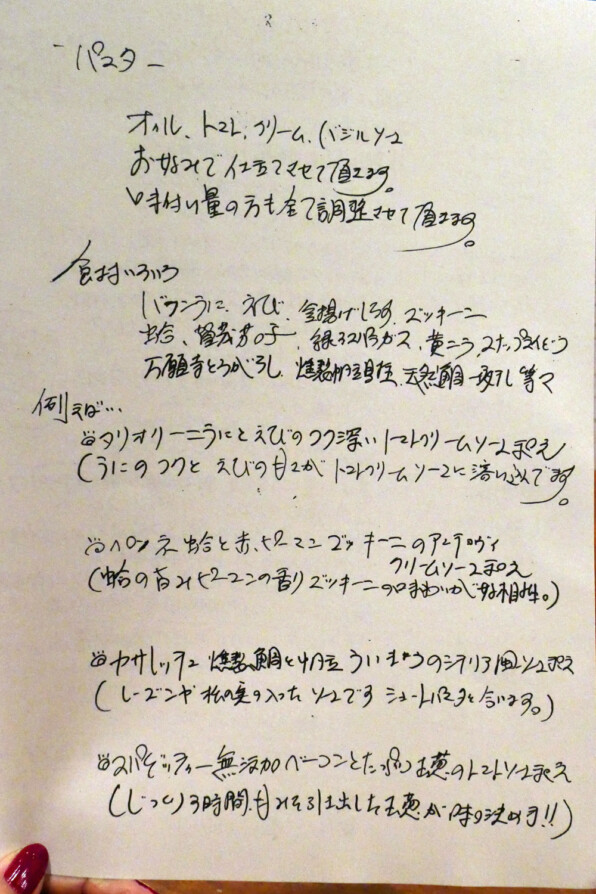 - パスタ -
オイル、トマト、クリーム、バジルソース
お好みで仕立てさせて頂きます。
味付け量の方も全て調整させて頂きます。
食材いろいろ
バフンうに、えび、釜揚げしらす、ズッキーニ
蛤、賀茂茄子、緑アスパラガス、黄ニラ、スナップえんどう
万願寺とうがらし、燻製帆立、天然鯛一夜干し等々
例えば…
タリオリーニうにとえびのコク深いトマトクリームソース和え
(うにのコクとえびの甘さがトマトクリームソースに溶け込んでます。
ペンネ 蛤と赤ピーマン ズッキーニのアンチョヴィ
クリームソース和え
(蛤の旨み ピーマンの香り ズッキーニの味わいが好相性。)
カサレッチェ 燻製鯛と帆立 ういきょうのシチリア風ソース和え
(レーズンや松の実の入ったソースです ショートパスタと合います。)
スパゲッティー 無添加ベーコンとたっぷり玉葱のトマトソース和え
(じっくり3時間、甘みを引き出した玉葱が味の決め手!!)